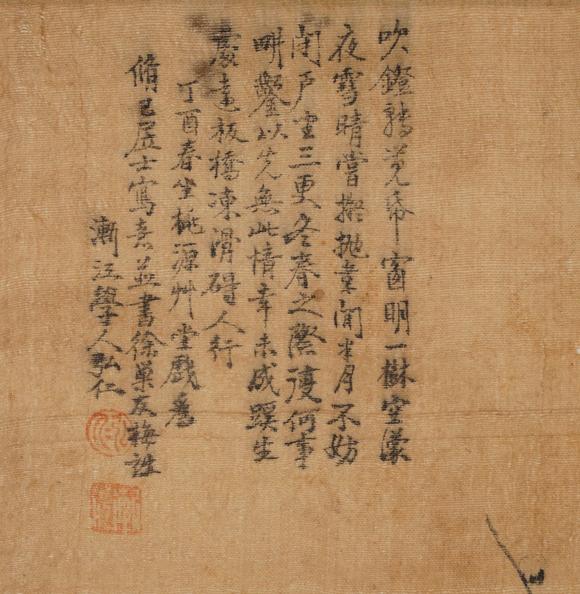 吹鐙轉覺帋窗明一樹空濛
夜雪晴嘗擬拋棄閒半月不妨
閉戶坐三更冬春之際復何事
畊鑿以先無此情幸未成蹊生
處遠板橋凍滑碍人行
丁酉春坐桃源艸堂戲爲
脩己居士寫意並書徐巢友梅詩
漸江學人弘仁